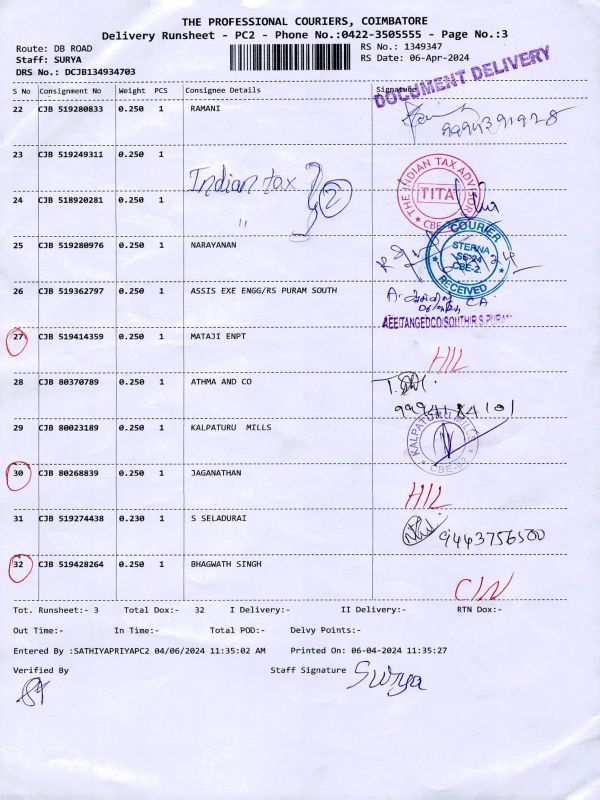 THE PROFESSIONAL COURIERS, COIMBATORE
Delivery Runsheet - PC2 - Phone No.:0422-3505555 - Page No.:3
Route: DB ROAD
RS No.: 1349347
Staff: SURYA
RS Date: 06-Apr-2024
DRS No.: DCJB134934703
DOCUMENT DELIVERY
S No Consignment No Weight PCS Consignee Details Signature
22 CJB 519280833 0.250 1 RAMANI
9994391928
23 CJB 519249311 0.250 1
Indian tax 2
THE INDIAN TAX ADVISOR
TITA
CBE-2
24 CJB 518920281 0.250 1 "
COURIER
STERNA
CBE-2.
RECEIVED
25 CJB 519280976 0.250 1 NARAYANAN
26 CJB 519362797 0.250 1 ASSIS EXE ENGG/RS PURAM SOUTH
27 CJB 519414359 0.250 1 MATAJI ENPT
28 CJB 80370789 0.250 1 ATHMA AND CO
9994184101
29 CJB 80023189 0.250 1 KALPATURU MILLS
KALPATURU MILLS
CBE-02
30 CJB 80268839 0.250 1 JAGANATHAN
31 CJB 519274438 0.230 1 S SELADURAI
9443756500
32 CJB 519428264 0.250 1 BHAGWATH SINGH
Tot. Runsheet:- 3 Total Dox:- 32 I Delivery:- II Delivery:- RTN Dox:-
Out Time:- In Time:- Total POD:- Delvy Points:-
Entered By :SATHIYAPRIYAPC2 04/06/2024 11:35:02 AM Printed On: 06-04-2024 11:35:27
Verified By Staff Signature Surya